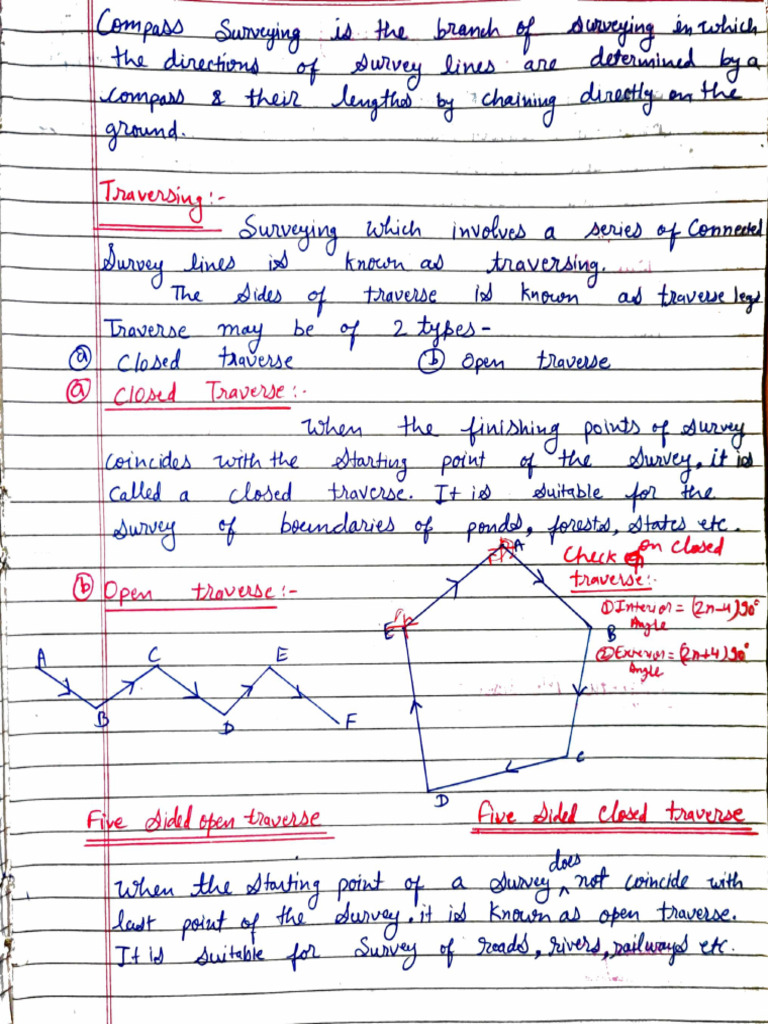 Compass Surveying is the branch of surveying in which
the directions of survey lines are determined by a
compass & their lengths by chaining directly on the
ground.
Traversing:-
Surveying which involves a series of Connected
Survey lines is known as traversing.
The sides of traverse is known as traverse legs
Traverse may be of 2 types-
(a) Closed traverse (b) Open traverse
(a) Closed Traverse:-
When the finishing points of survey
coincides with the starting point of the survey, it is
called a closed traverse. It is suitable for the
survey of boundaries of ponds, forests, states etc.
(b) Open traverse:-
Check on closed
traverse:-
① Interior = (2n-4)90°
Angle
② Exterior = (2n+4)90°
Angle
A
B
C
D
E
F
A
B
C
D
E
Five sided open traverse
Five sided closed traverse
does
When the starting point of a survey ^ not coincide with
last point of the survey, it is known as open traverse.
It is suitable for survey of roads, rivers, railways etc.